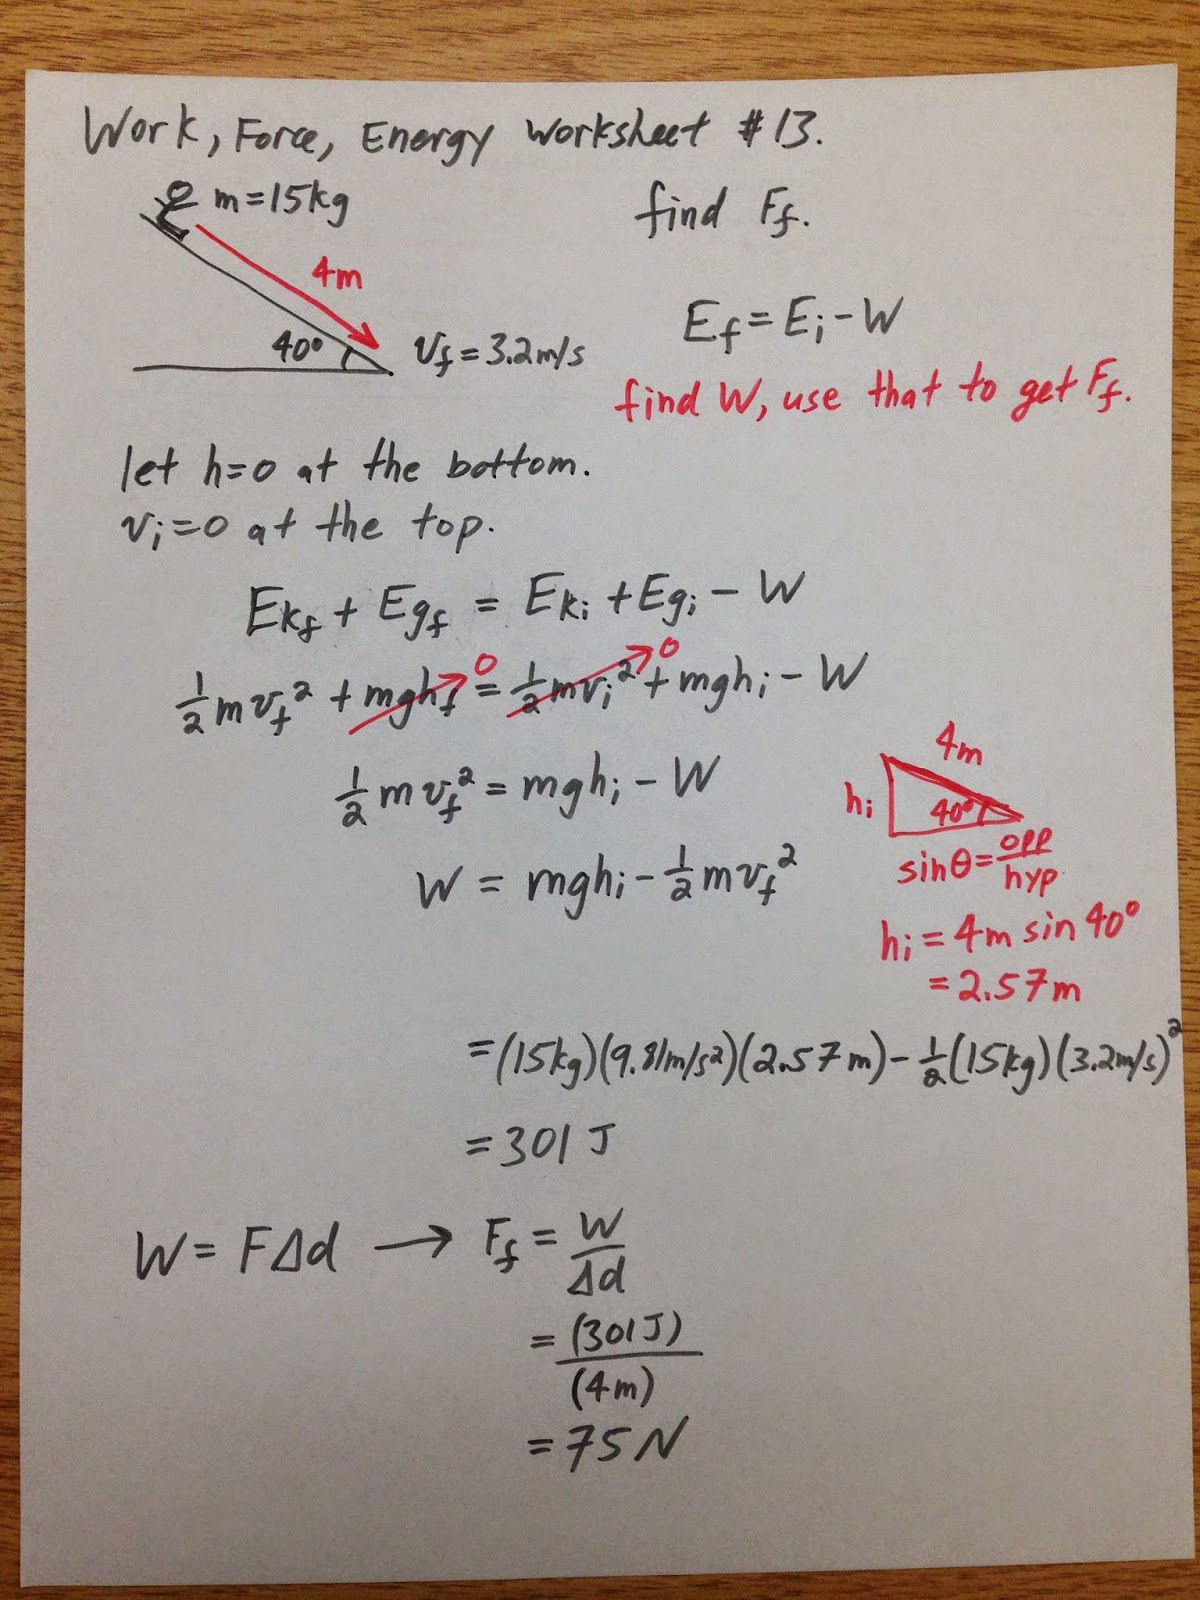 Work, Force, Energy Worksheet #13.
m=15kg
find Ff.
4m
40° vf=3.2m/s
Ef=Ei-W
find W, use that to get Ff.
let h=0 at the bottom.
vi=0 at the top.
Ekf + Egf = Eki + Egi - W
½mvf² + mghf = ½mvi² + mghi - W
0 0
½mvf² = mghi - W
4m
hi 40°
sinθ = opp/hyp
W = mghi - ½mvf²
hi = 4m sin 40°
= 2.57m
= (15kg)(9.81m/s²)(2.57m) - ½(15kg)(3.2m/s)²
= 301 J
W = FΔd → Ff = W/Δd
= (301J)/(4m)
= 75N